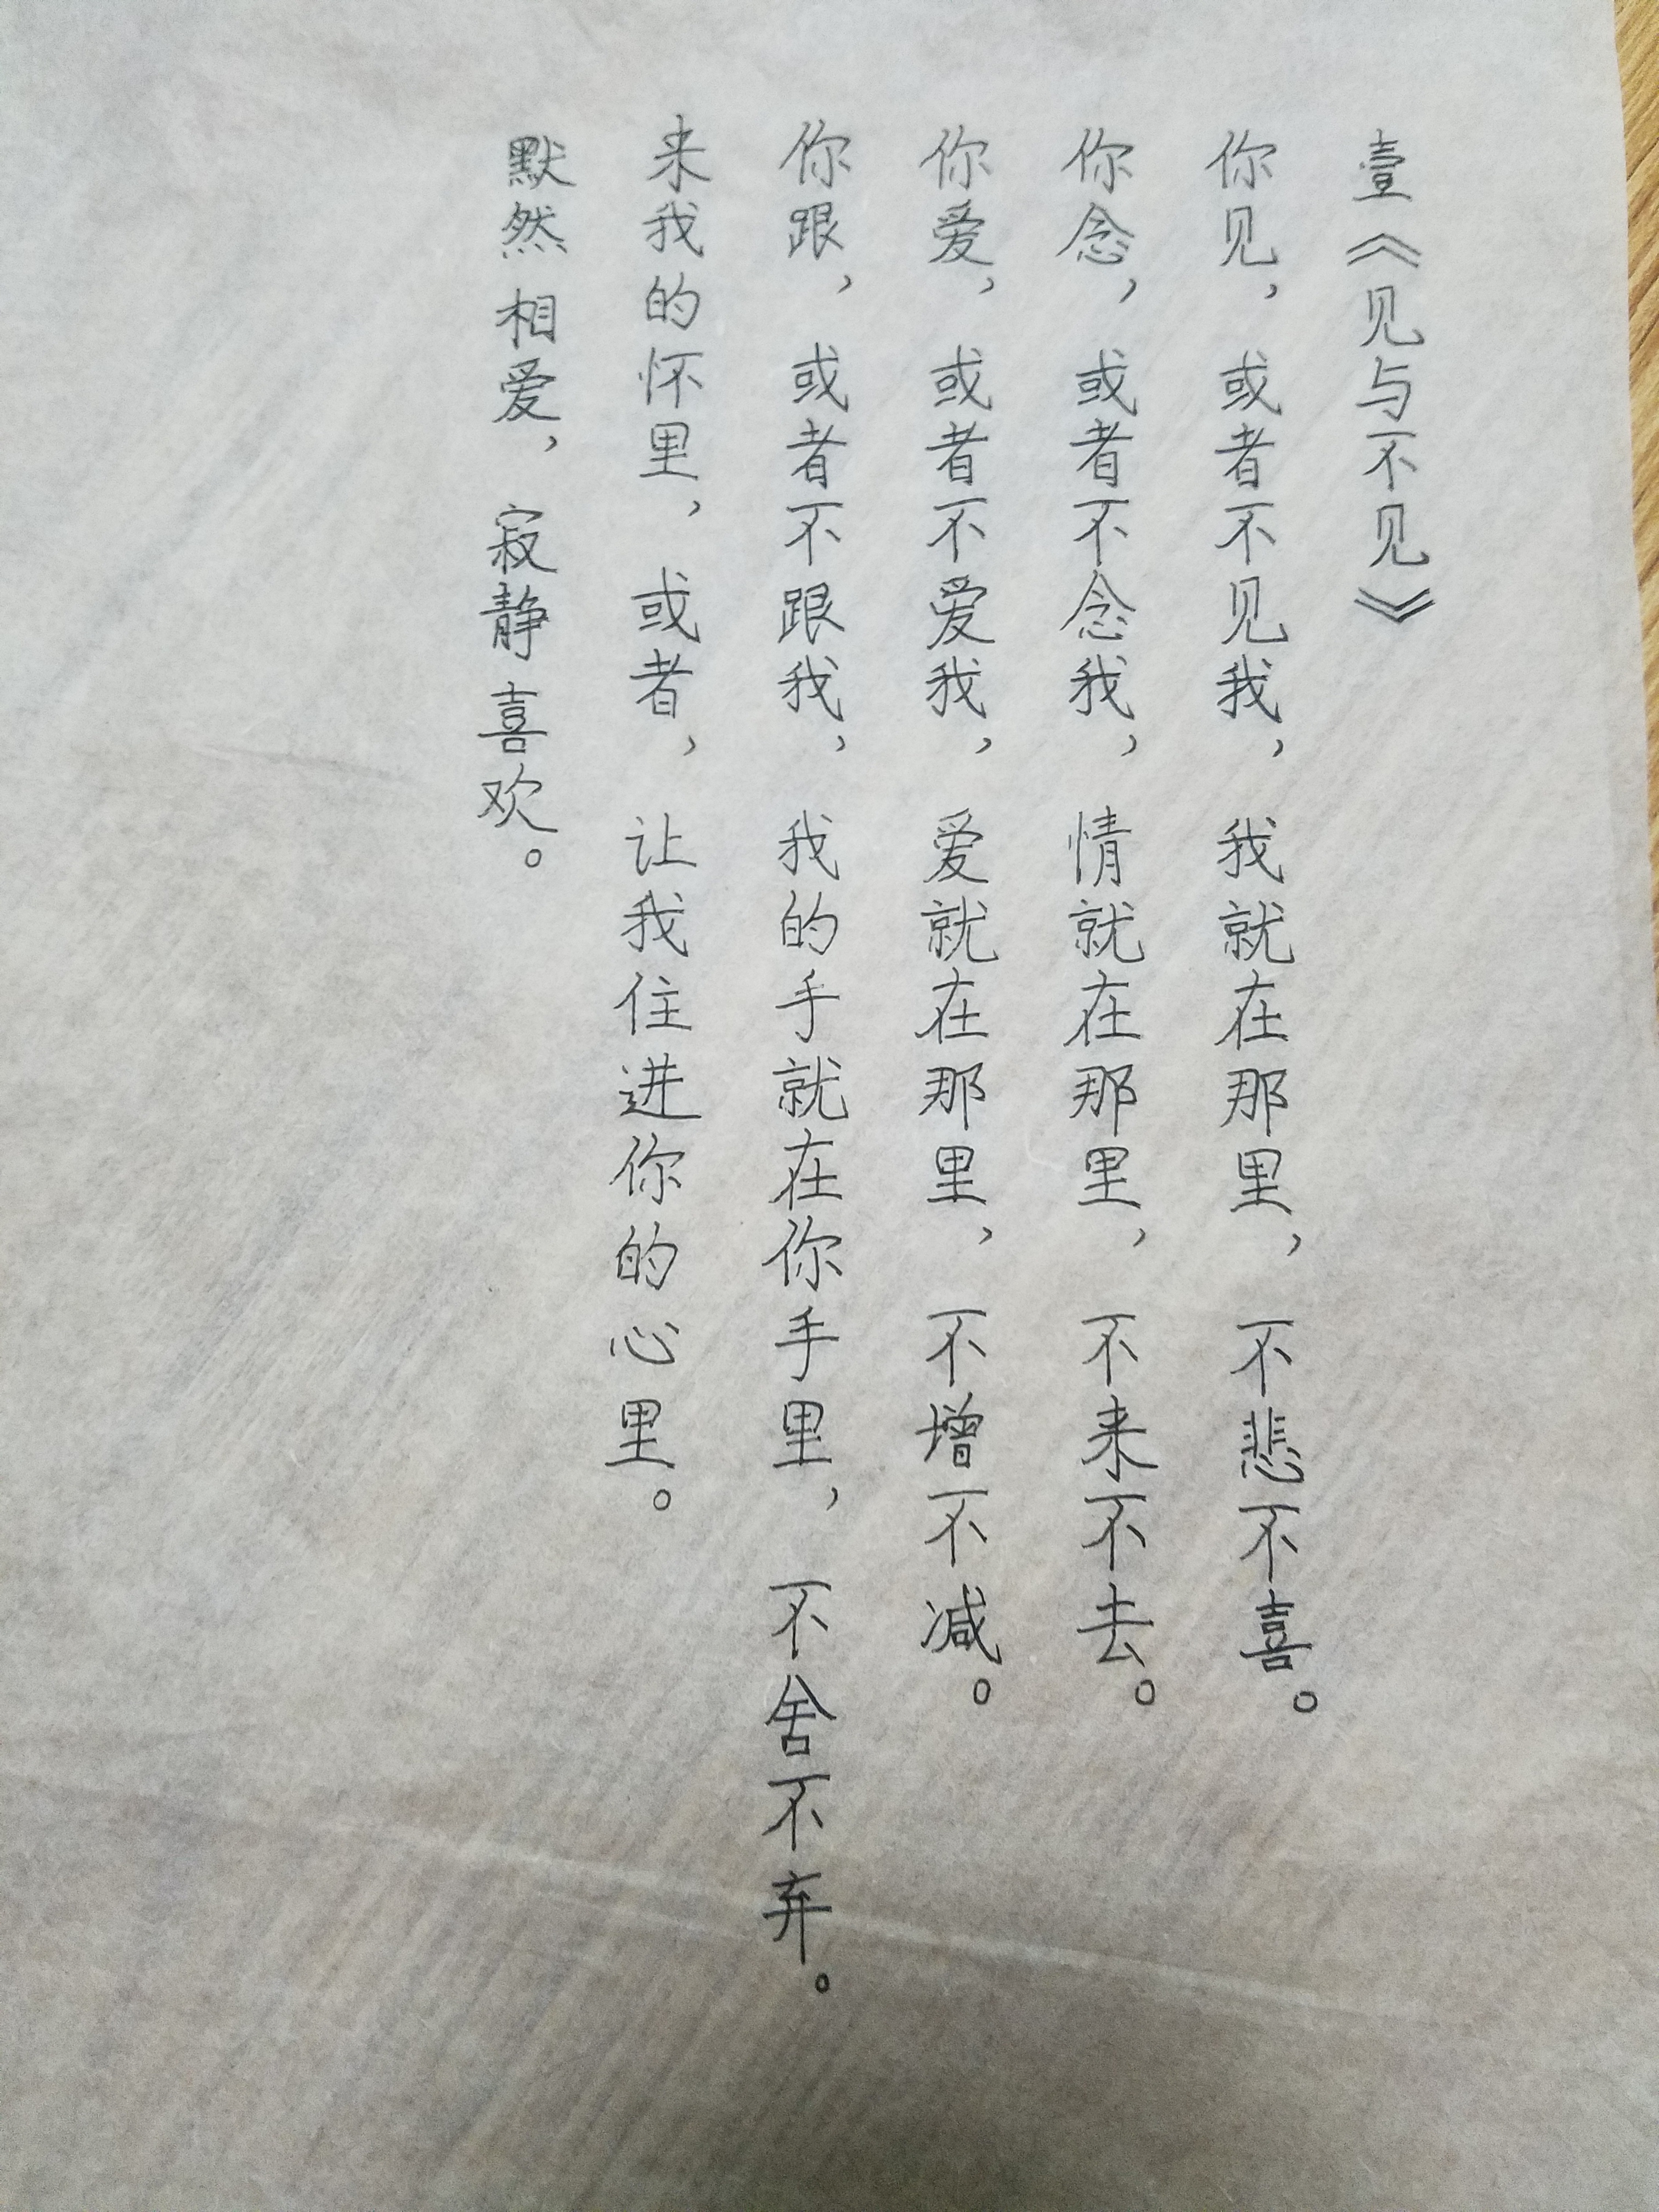 壹《见与不见》
你见，或者不见我，我就在那里，不悲不喜。
你念，或者不念我，情就在那里，不来不去。
你爱，或者不爱我，爱就在那里，不增不减。
你跟，或者不跟我，我的手就在你手里，不舍不弃。
来我的怀里，或者，让我住进你的心里。
默然 相爱，寂静 喜欢。